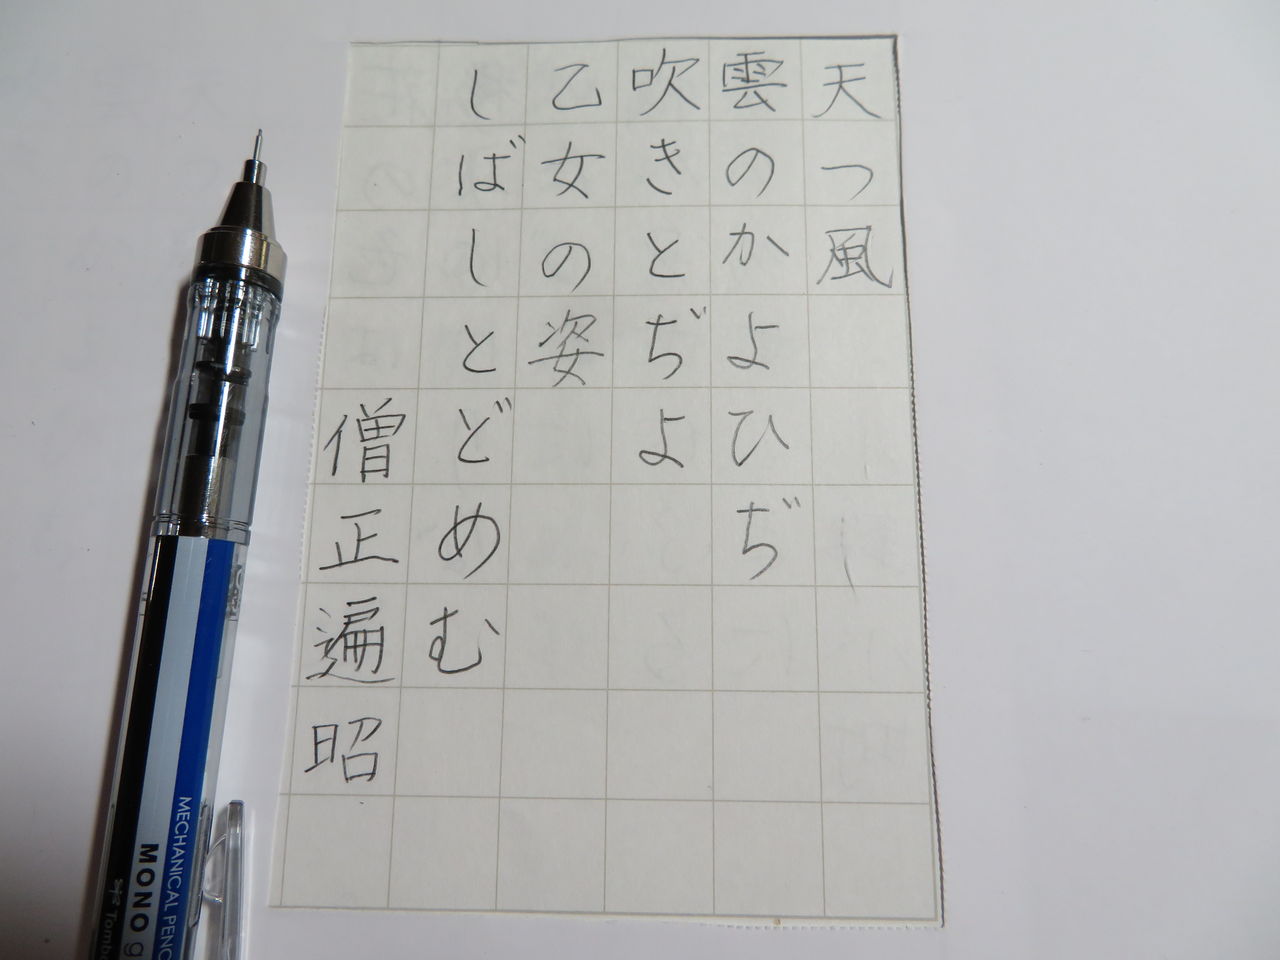 天つ風
雲のかよひぢ
吹きとぢよ
乙女の姿
しばしとどめむ
僧正遍昭
MECHANICAL PENC
MONO g
Tombo